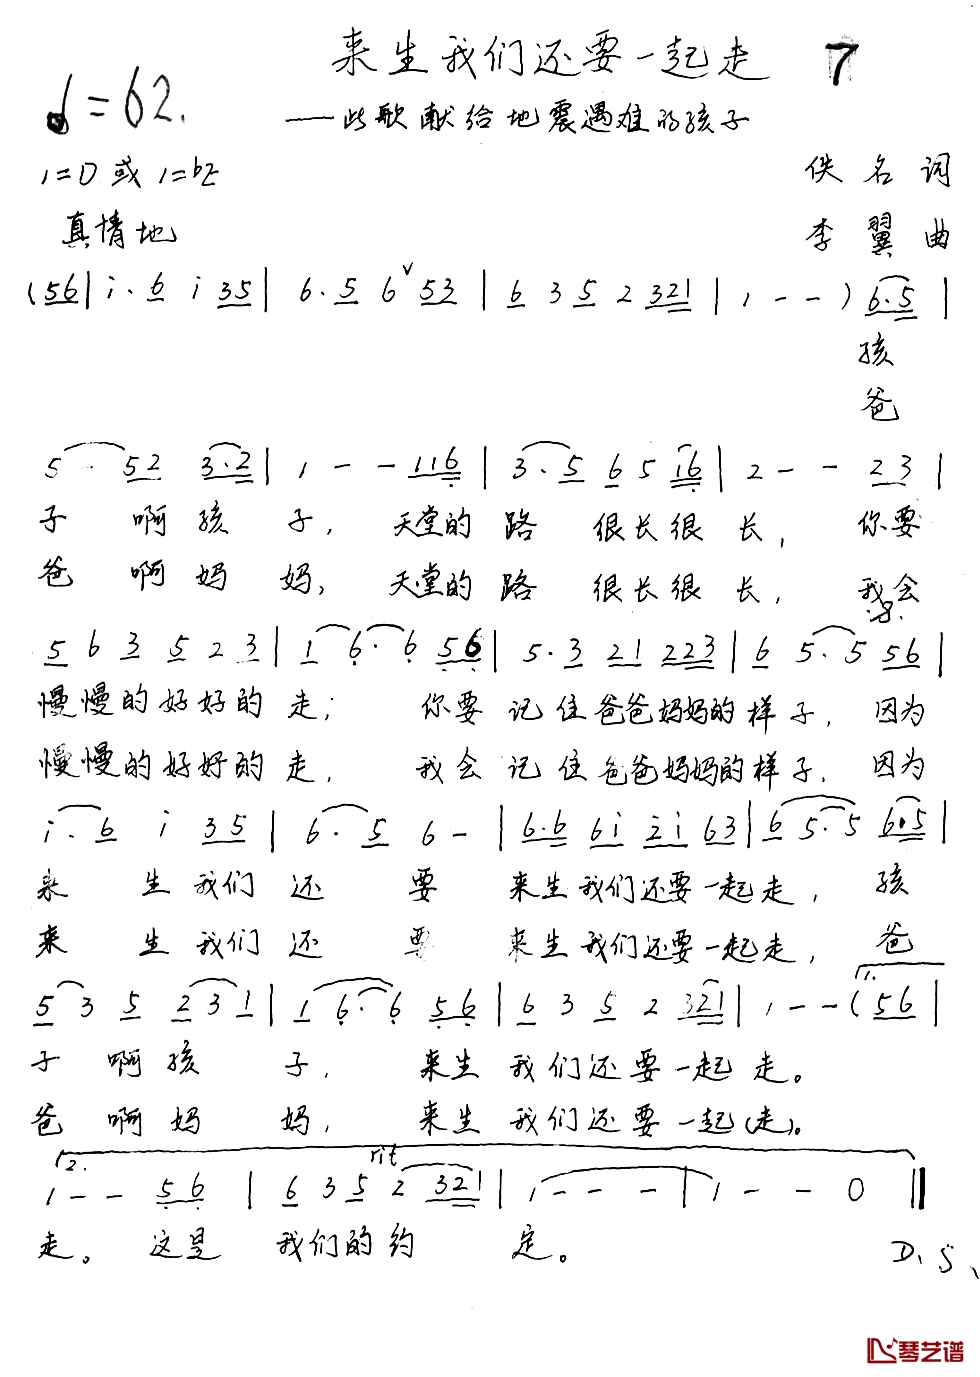 来生我们还要一起走 7
♩=62.
——此歌献给地震遇难的孩子
1=D或1=bE
佚名词
真情地
李翼曲
(56| i·6 i 35| 6·5 6˅53| 6 3 5 2 321| 1 - - ) 6·5|
孩
爸
5 - 52 3·2| 1 - - 116| 3·5 6 5 16| 2 - - 23|
子 啊孩 子, 天堂的路 很长很 长, 你要
爸 啊妈 妈, 天堂的路 很长很 长, 我会
5 6 3 5 2 3| 1 6·6 56| 5·3 21 223| 6 5·5 56|
慢慢的好好的 走; 你要 记住爸爸妈妈的样子, 因为
慢慢的好好的 走, 我会 记住爸爸妈妈的样子, 因为
i·6 i 35| 6·5 6 -| 6·6 6i 2i 63| 6 5·5 6·5|
来 生我们 还 要 来生我们还要一起走, 孩
来 生我们 还 要 来生我们还要一起走, 爸
1.
5 3 5 2 3 1| 1 6·6 56| 6 3 5 2 321| 1 - - (56|
子 啊孩 子, 来生 我们还要一起 走。
爸 啊妈 妈, 来生 我们还要一起(走)。
2. rit
1 - - 56| 6 3 5 2 321| 1 - - -| 1 - - 0‖
走。 这是 我们的约 定。
D、S、
琴艺谱